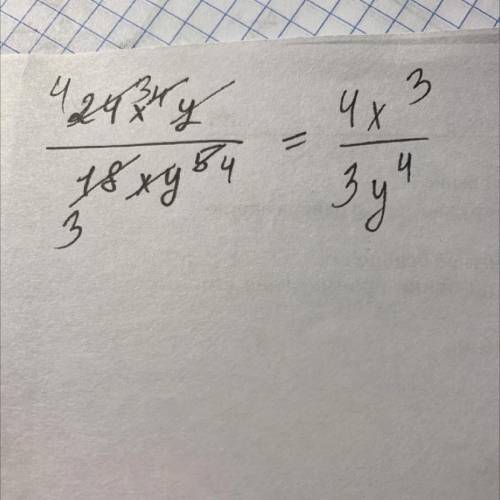 4 24x³⁴y / 18xy⁵⁴ 3 = 4x³ / 3y⁴